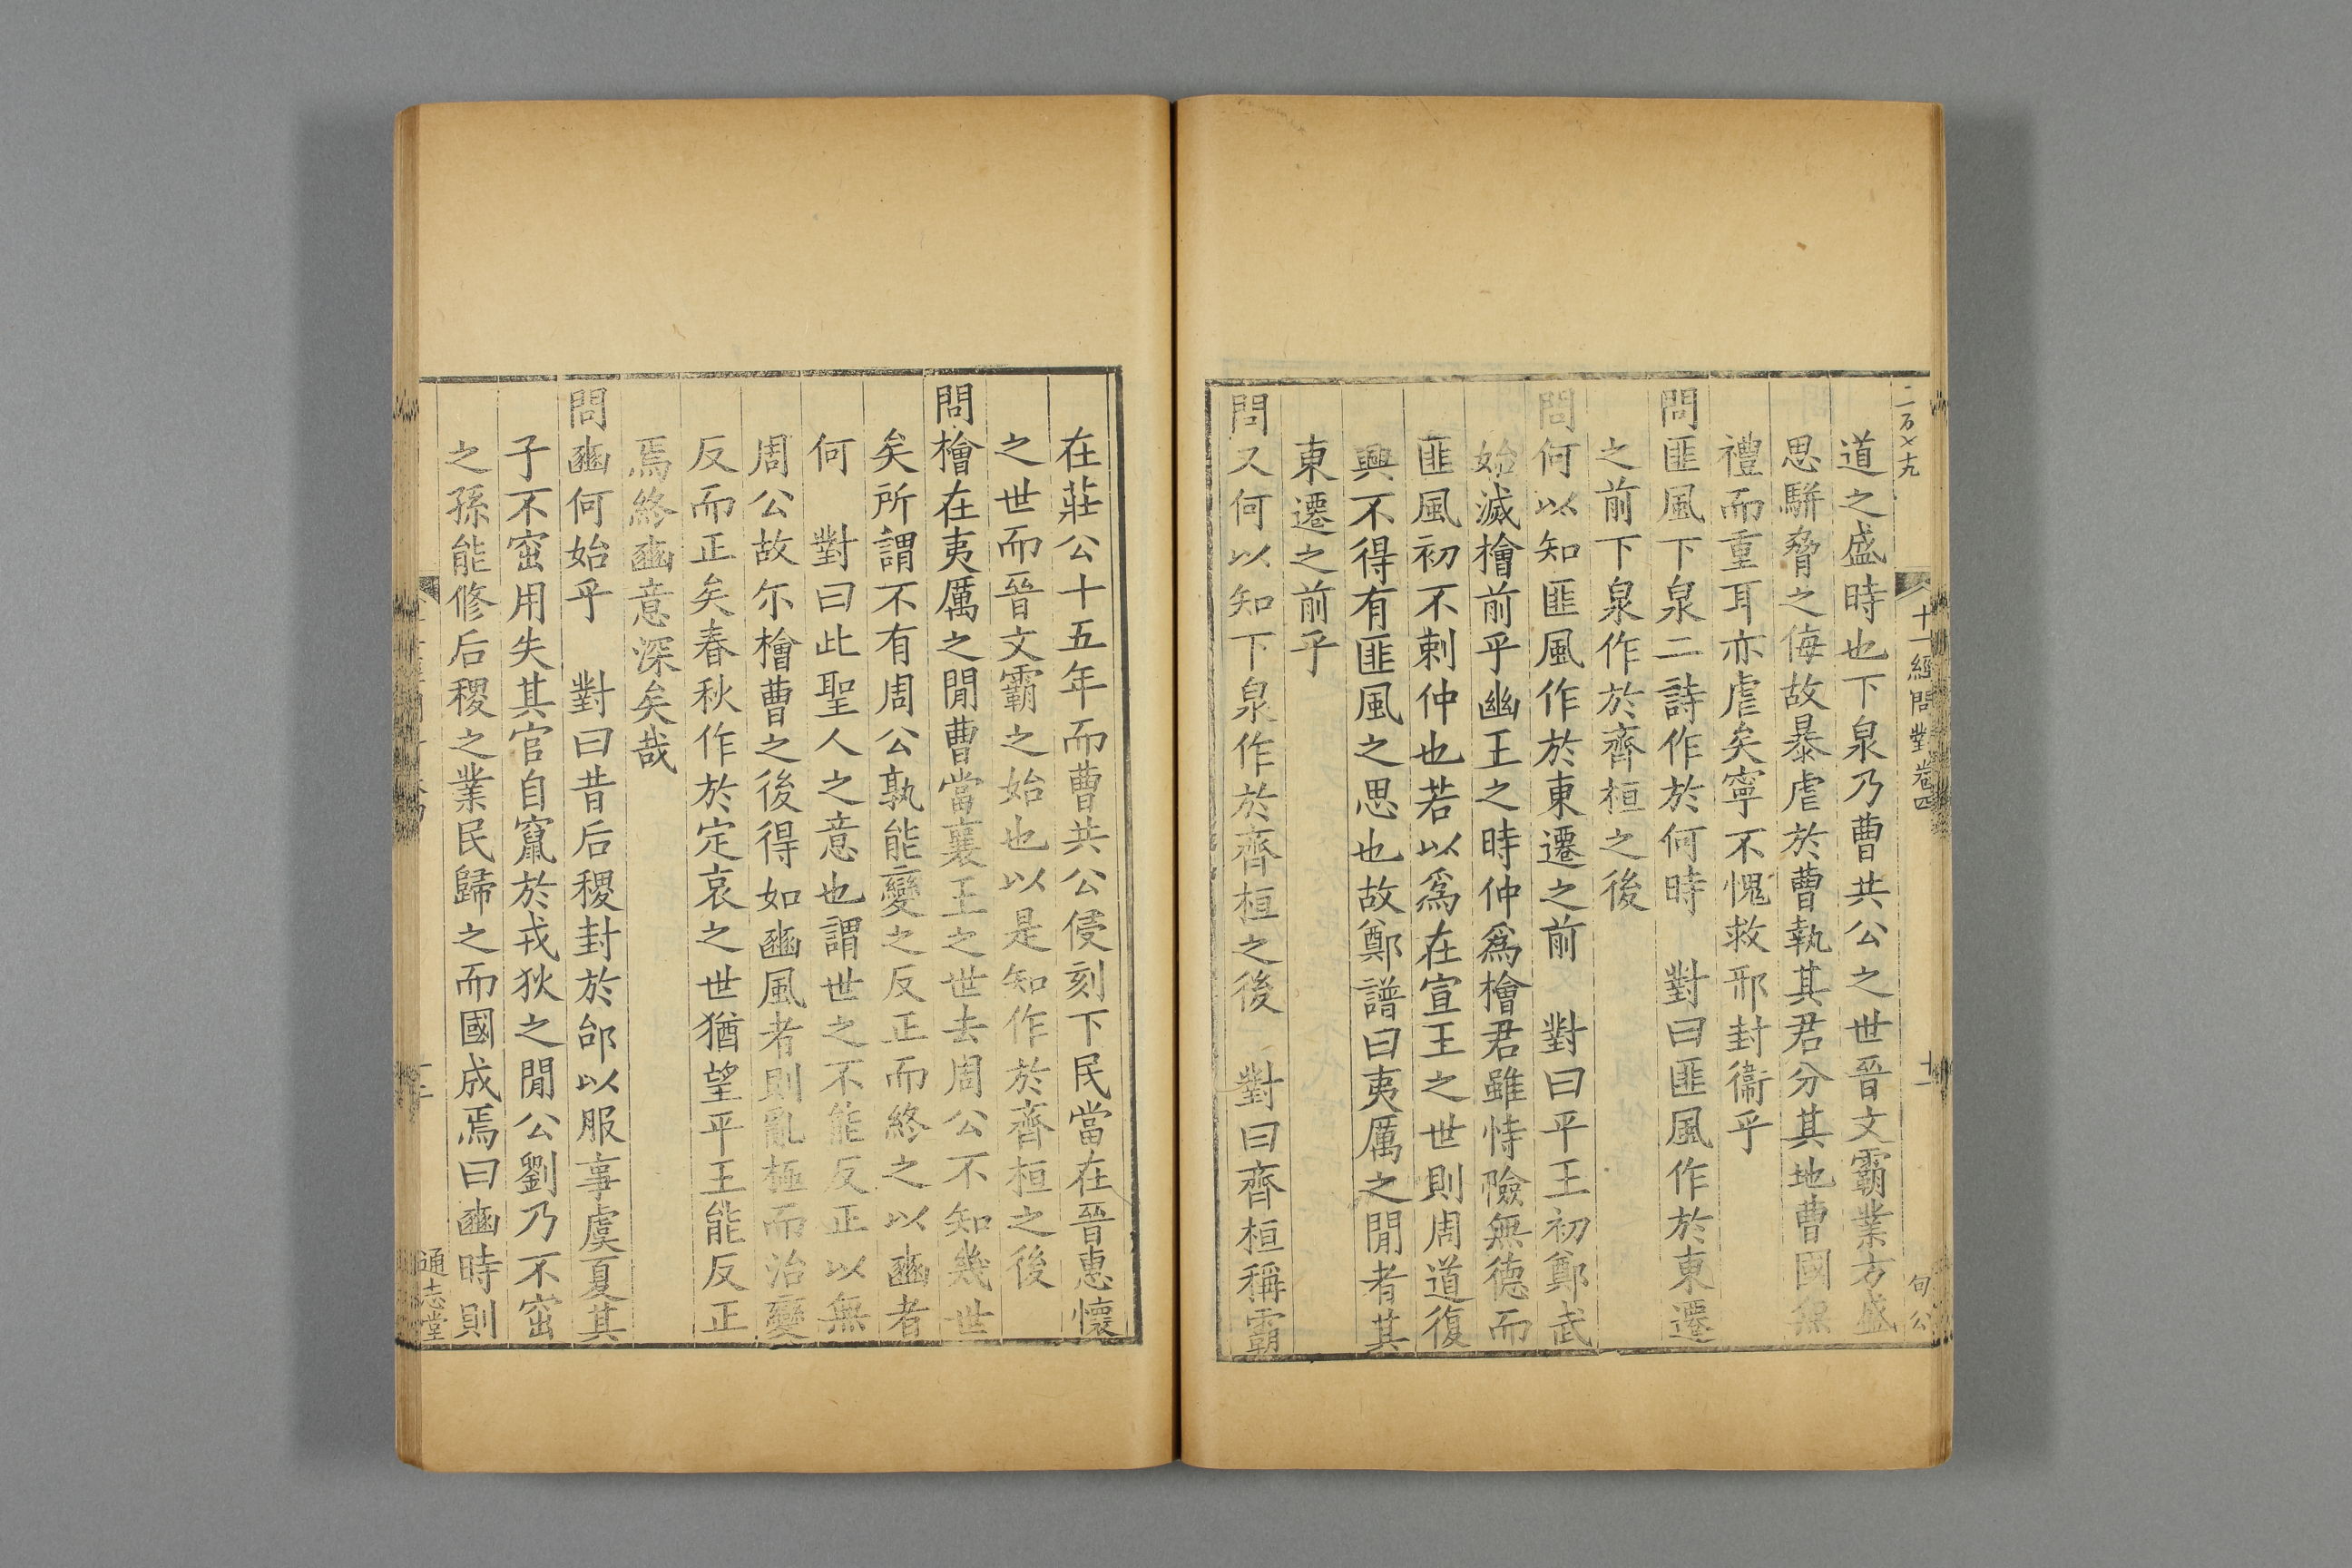 十一經問對卷四
十二
旬公
道之盛時也下泉乃曹共公之世晉文霸業方盛
思駢脅之侮故暴虐於曹執其君分其地曹國無
禮而重耳亦虐矣寧不愧救邢封衞乎
問匪風下泉二詩作於何時　對曰匪風作於東遷
之前下泉作於齊桓之後
問何以知匪風作於東遷之前　對曰平王初鄭武
始滅檜前乎幽王之時仲爲檜君雖恃險無德而
匪風初不刺仲也若以爲在宣王之世則周道復
興不得有匪風之思也故鄭譜曰夷厲之閒者其
東遷之前乎
問又何以知下泉作於齊桓之後　對曰齊桓稱霸
在莊公十五年而曹共公侵刻下民當在晉惠懷
之世而晉文霸之始也以是知作於齊桓之後
問檜在夷厲之閒曹當襄王之世去周公不知幾世
矣所謂不有周公孰能變之反正而終之以豳者
何　對曰此聖人之意也謂世之不能反正以無
周公故尓檜曹之後得如豳風者則亂極而治變
反而正矣春秋作於定哀之世猶望平王能反正
焉終豳意深矣哉
問豳何始乎　對曰昔后稷封於邰以服事虞夏其
子不窋用失其官自竄於戎狄之閒公劉乃不窋
之孫能修后稷之業民歸之而國成焉曰豳時則
通志堂